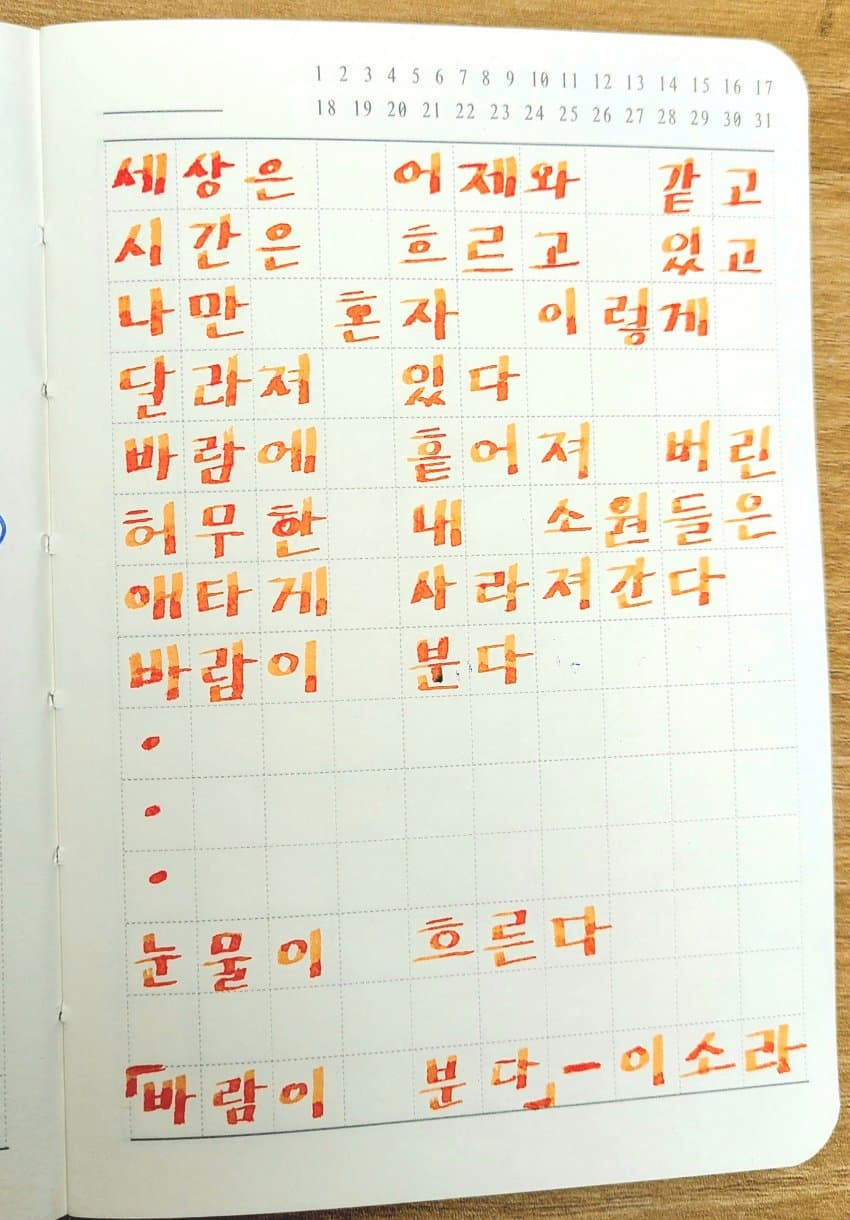 1 2 3 4 5 6 7 8 9 10 11 12 13 14 15 16 17
18 19 20 21 22 23 24 25 26 27 28 29 30 31
세상은 어제와 같고
시간은 흐르고 있고
나만 혼자 이렇게
달라져 있다
바람에 흩어져 버린
허무한 내 소원들은
애타게 사라져간다
바람이 분다
•
•
•
눈물이 흐른다
「바람이 분다」-이소라